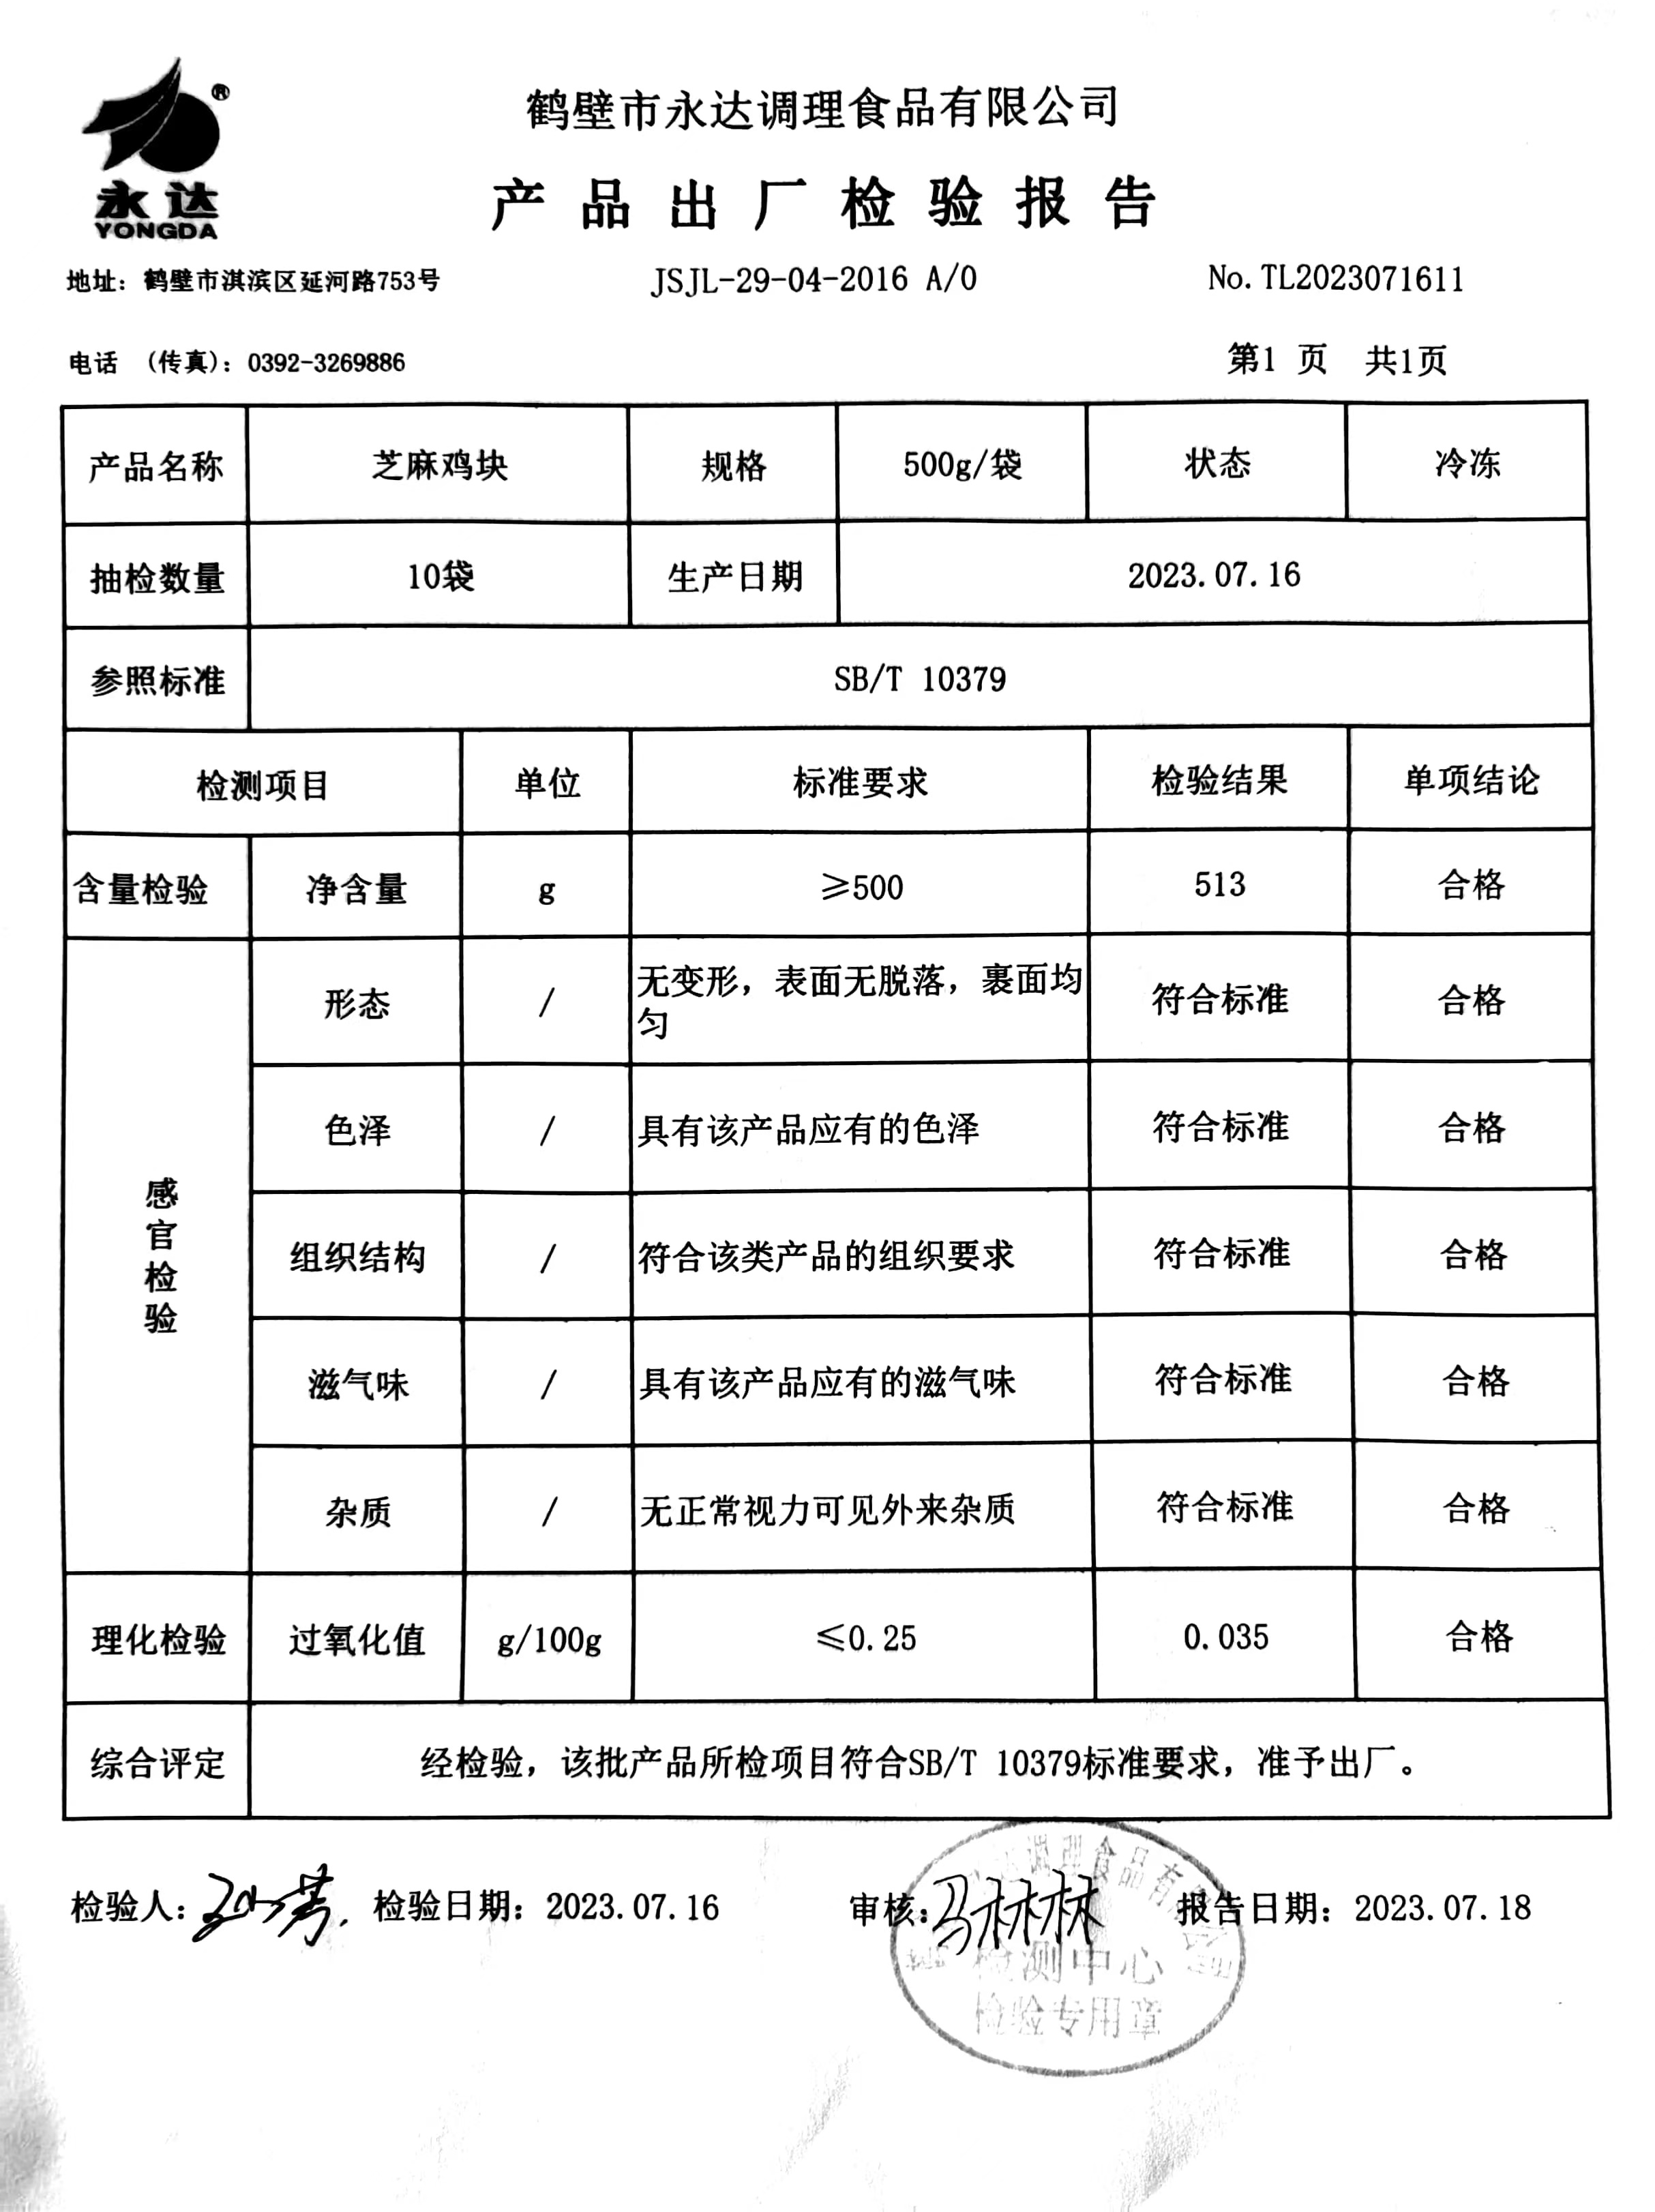 ®
永达
YONGDA
鹤壁市永达调理食品有限公司
产品出厂检验报告
地址：鹤壁市淇滨区延河路753号 JSJL-29-04-2016 A/0 No.TL2023071611
电话 （传真）：0392-3269886 第1 页 共1页
产品名称 芝麻鸡块 规格 500g/袋 状态 冷冻
抽检数量 10袋 生产日期 2023.07.16
参照标准 SB/T 10379
检测项目 单位 标准要求 检验结果 单项结论
含量检验 净含量 g ≥500 513 合格
感官检验
形态 / 无变形，表面无脱落，裹面均
匀 符合标准 合格
色泽 / 具有该产品应有的色泽 符合标准 合格
组织结构 / 符合该类产品的组织要求 符合标准 合格
滋气味 / 具有该产品应有的滋气味 符合标准 合格
杂质 / 无正常视力可见外来杂质 符合标准 合格
理化检验 过氧化值 g/100g ≤0.25 0.035 合格
综合评定 经检验，该批产品所检项目符合SB/T 10379标准要求，准予出厂。
检验人： 检验日期：2023.07.16 审核：马林林 报告日期：2023.07.18
检测中心
检验专用章